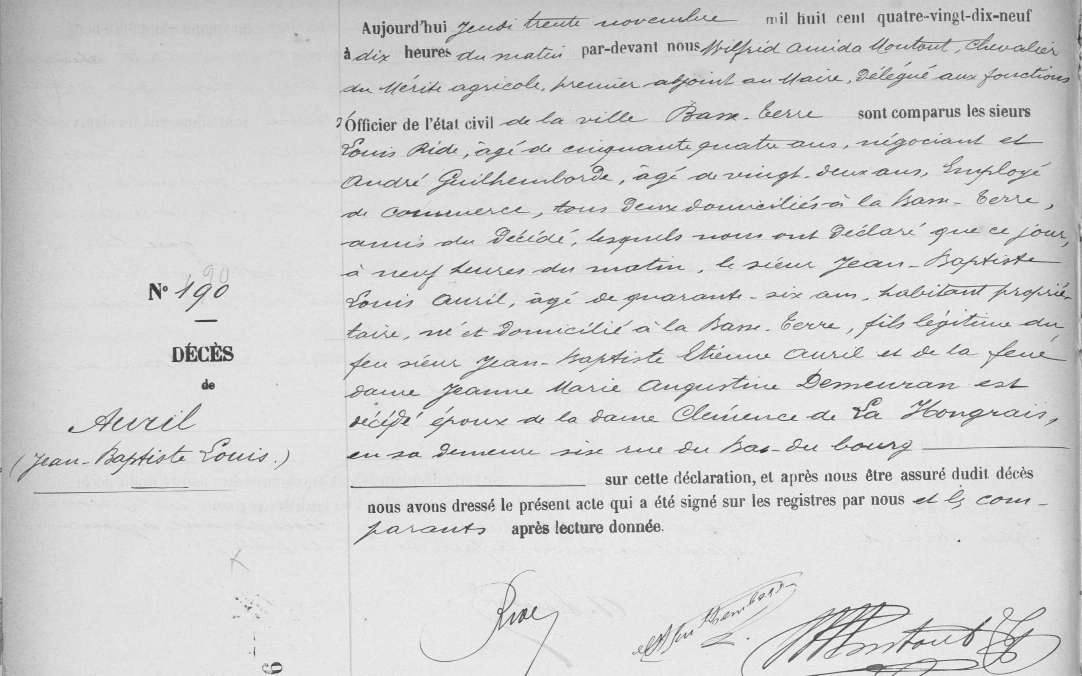 Aujourd'hui Jeudi trente novembre mil huit cent quatre-vingt-dix-neuf
à dix heures du matin par-devant nous Wilfrid Amida Montout, Chevalier
du Mérite agricole, premier adjoint au Maire, délégué aux fonctions
d'Officier de l'état civil de la ville Basse-Terre sont comparus les sieurs
Louis Ride, âgé de cinquante quatre ans, négociant et
André Guilhemborde, âgé de vingt-deux ans, Employé
de commerce, tous deux domiciliés à la Basse-Terre,
amis du décédé, lesquels nous ont déclaré que ce jour,
à neuf heures du matin, le sieur Jean-Baptiste
Louis Avril, âgé de quarante-six ans, habitant proprié-
taire, né et domicilié à la Basse-Terre, fils légitime du
feu sieur Jean-Baptiste Etienne Avril et de la feue
dame Jeanne Marie Augustine Demeuran est
décédé époux de la dame Clémence de La Hongrais,
en sa demeure sise rue du Bas-du bourg
sur cette déclaration, et après nous être assuré dudit décès
nous avons dressé le présent acte qui a été signé sur les registres par nous et les com-
parants après lecture donnée.
90
N° 190
DÉCÈS
de
Avril
(Jean-Baptiste Louis.)
Ride